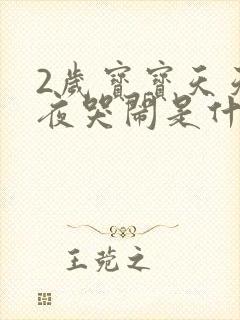 2歲寶寶天天
夜哭鬧是什
王菀之